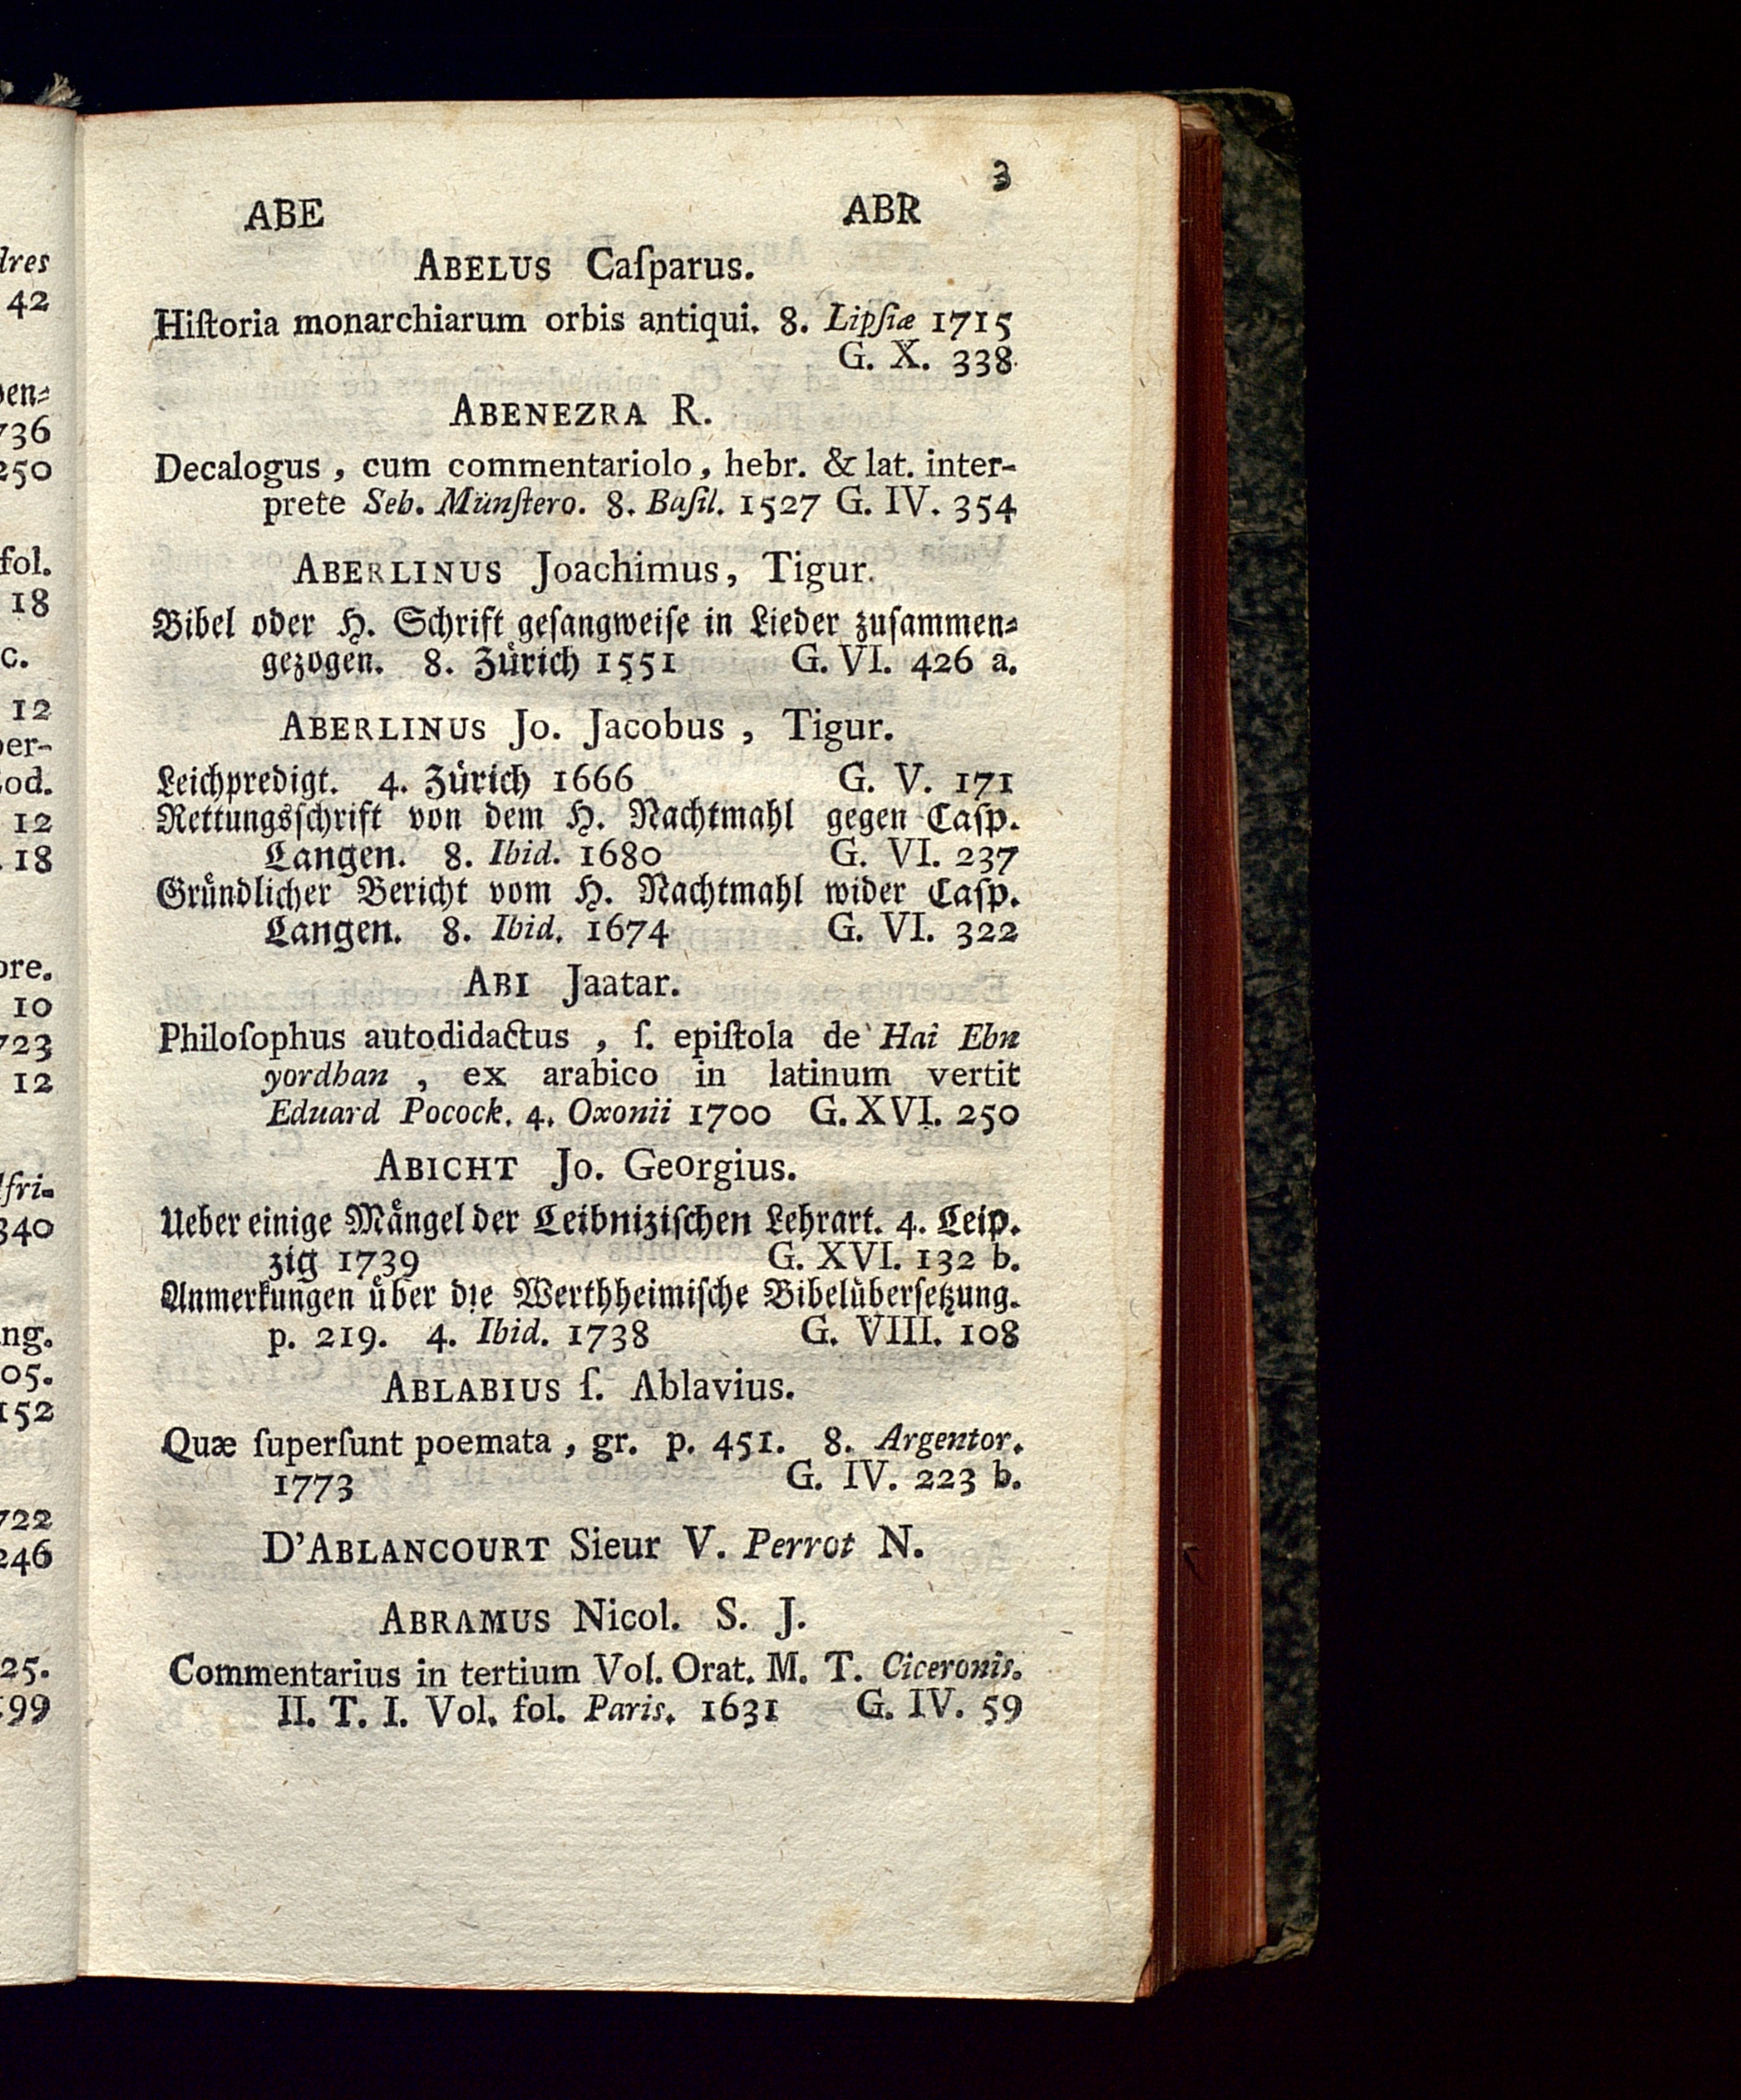 3
ABE ABR
ABELUS Caſparus.
Hiſtoria monarchiarum orbis antiqui. 8. Lipſiæ 1715
G. X. 338
ABENEZRA R.
Decalogus, cum commentariolo, hebr. & lat. inter-
prete Seb. Münſtero. 8. Baſil. 1527 G. IV. 354
ABERLINUS Joachimus, Tigur.
Bibel oder H. Schrift geſangweiſe in Lieder zuſammen⸗
gezogen. 8. Zürich 1551 G. VI. 426 a.
ABERLINUS Jo. Jacobus, Tigur.
Leichpredigt. 4. Zürich 1666 G. V. 171
Rettungsſchrift von dem H. Nachtmahl gegen Caſp.
Langen. 8. Ibid. 1680 G. VI. 237
Gründlicher Bericht vom H. Nachtmahl wider Caſp.
Langen. 8. Ibid. 1674 G. VI. 322
ABI Jaatar.
Philoſophus autodidactus, ſ. epiſtola de Hai Ebn
yordhan, ex arabico in latinum vertit
Eduard Pocock. 4. Oxonii 1700 G. XVI. 250
ABICHT Jo. Georgius.
Ueber einige Mängel der Leibniziſchen Lehrart. 4. Leip.
zig 1739 G. XVI. 132 b.
Anmerkungen über die Werthheimiſche Bibelüberſetzung.
p. 219. 4. Ibid. 1738 G. VIII. 108
ABLABIUS ſ. Ablavius.
Quæ ſuperſunt poemata, gr. p. 451. 8. Argentor.
1773 G. IV. 223 b.
D'ABLANCOURT Sieur V. Perrot N.
ABRAMUS Nicol. S. J.
Commentarius in tertium Vol. Orat. M. T. Ciceronis.
II. T. I. Vol. fol. Paris. 1631 G. IV. 59